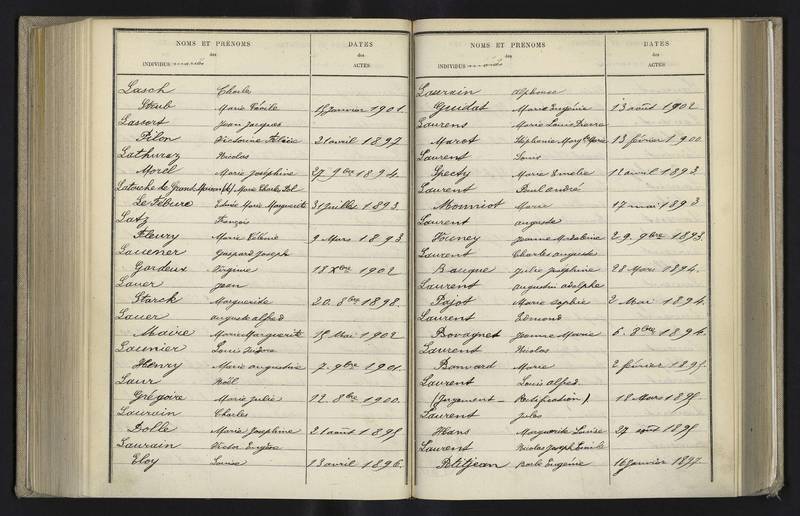 NOMS ET PRÉNOMS
des
INDIVIDUS mariés
DATES
des
ACTES
Lasch Charles
Staub Marie Cécile 15 janvier 1901.
Lassort Jean Jacques
Pilon Victorine 21 avril 1897
Lathuraz Nicolas
Morel Marie Joséphine 27 9bre 1894.
Latouche de Grand (de) Marie Charles
Le Fébure Marie Marguerite 31 juillet 1893.
Latz François
Fleury Marie 9 Mars 1893.
Lauener Gaspard Joseph
Gardeux Virginie 18 Xbre 1902
Lauer Jean
Starck Marguerite 20. 8bre 1898.
Lauer auguste alfred
Maire Marie Marguerite 15 Mai 1902
Launier Louis Isidore
Henry Marie augustine 7. 9bre 1901.
Laur Noël
Grégoire Marie Julie 12. 8bre 1900.
Laurain Charles
Dolle Marie Joséphine 21 août 1895
Laurain Victor Eugène
Eloy Louise 13 avril 1896.
NOMS ET PRÉNOMS
des
INDIVIDUS mariés
DATES
des
ACTES
Laurain alphonse
Guidat Marie Eugénie 13 août 1902
Laurens Marie Louis Pierre
Marot Stéphanie Marie 13 février 1900.
Laurent Louis
Specty Marie Emélie 12 avril 1893.
Laurent Paul andré
Monniot Marie 17 mai 1893
Laurent auguste
Jeanne Madeleine 29. 9bre 1893.
Laurent Charles auguste
Bauque Julie Joséphine 28 Mars 1894.
Laurent augustin adolphe
Pajot Marie Sophie 2 Mai 1894.
Laurent Edmond
Bovagnet Jeanne Marie 6. 8bre 1894.
Laurent Nicolas
Bonvard Marie 2 février 1895.
Laurent Louis alfred.
(Jugement - Rectification) 18 Mars 1895.
Laurent Jules
Hans Marguerite Louise 27 août 1895
Laurent Nicolas Joseph Emile
Petitjean Barbe Eugénie 16 janvier 1897.